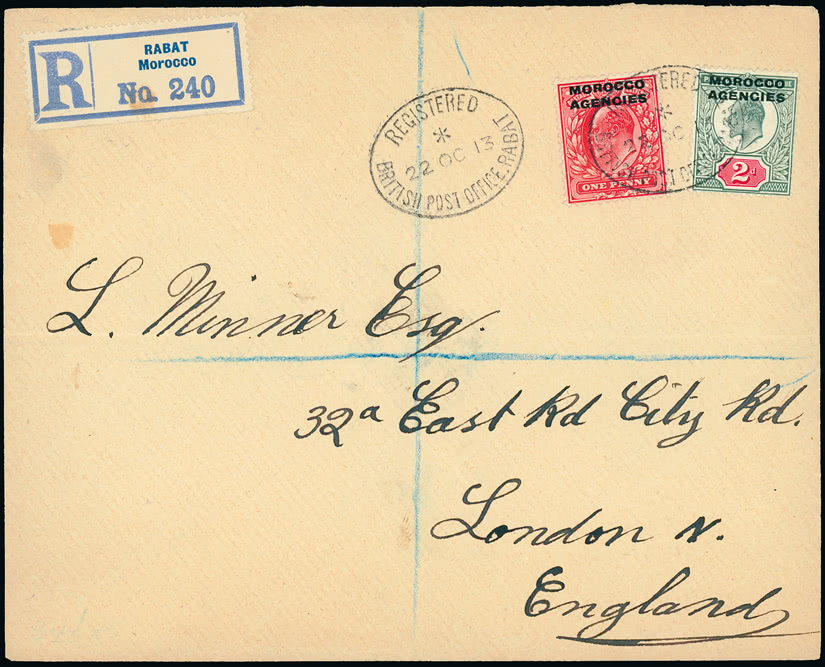 R
RABAT
Morocco
No. 240
REGISTERED
22 OC 13
BRITISH POST OFFICE. RABAT
MOROCCO
AGENCIES
ONE PENNY
MOROCCO
AGENCIES
2d
L. Minner Esq.
32a East Rd City Rd.
London N.
England